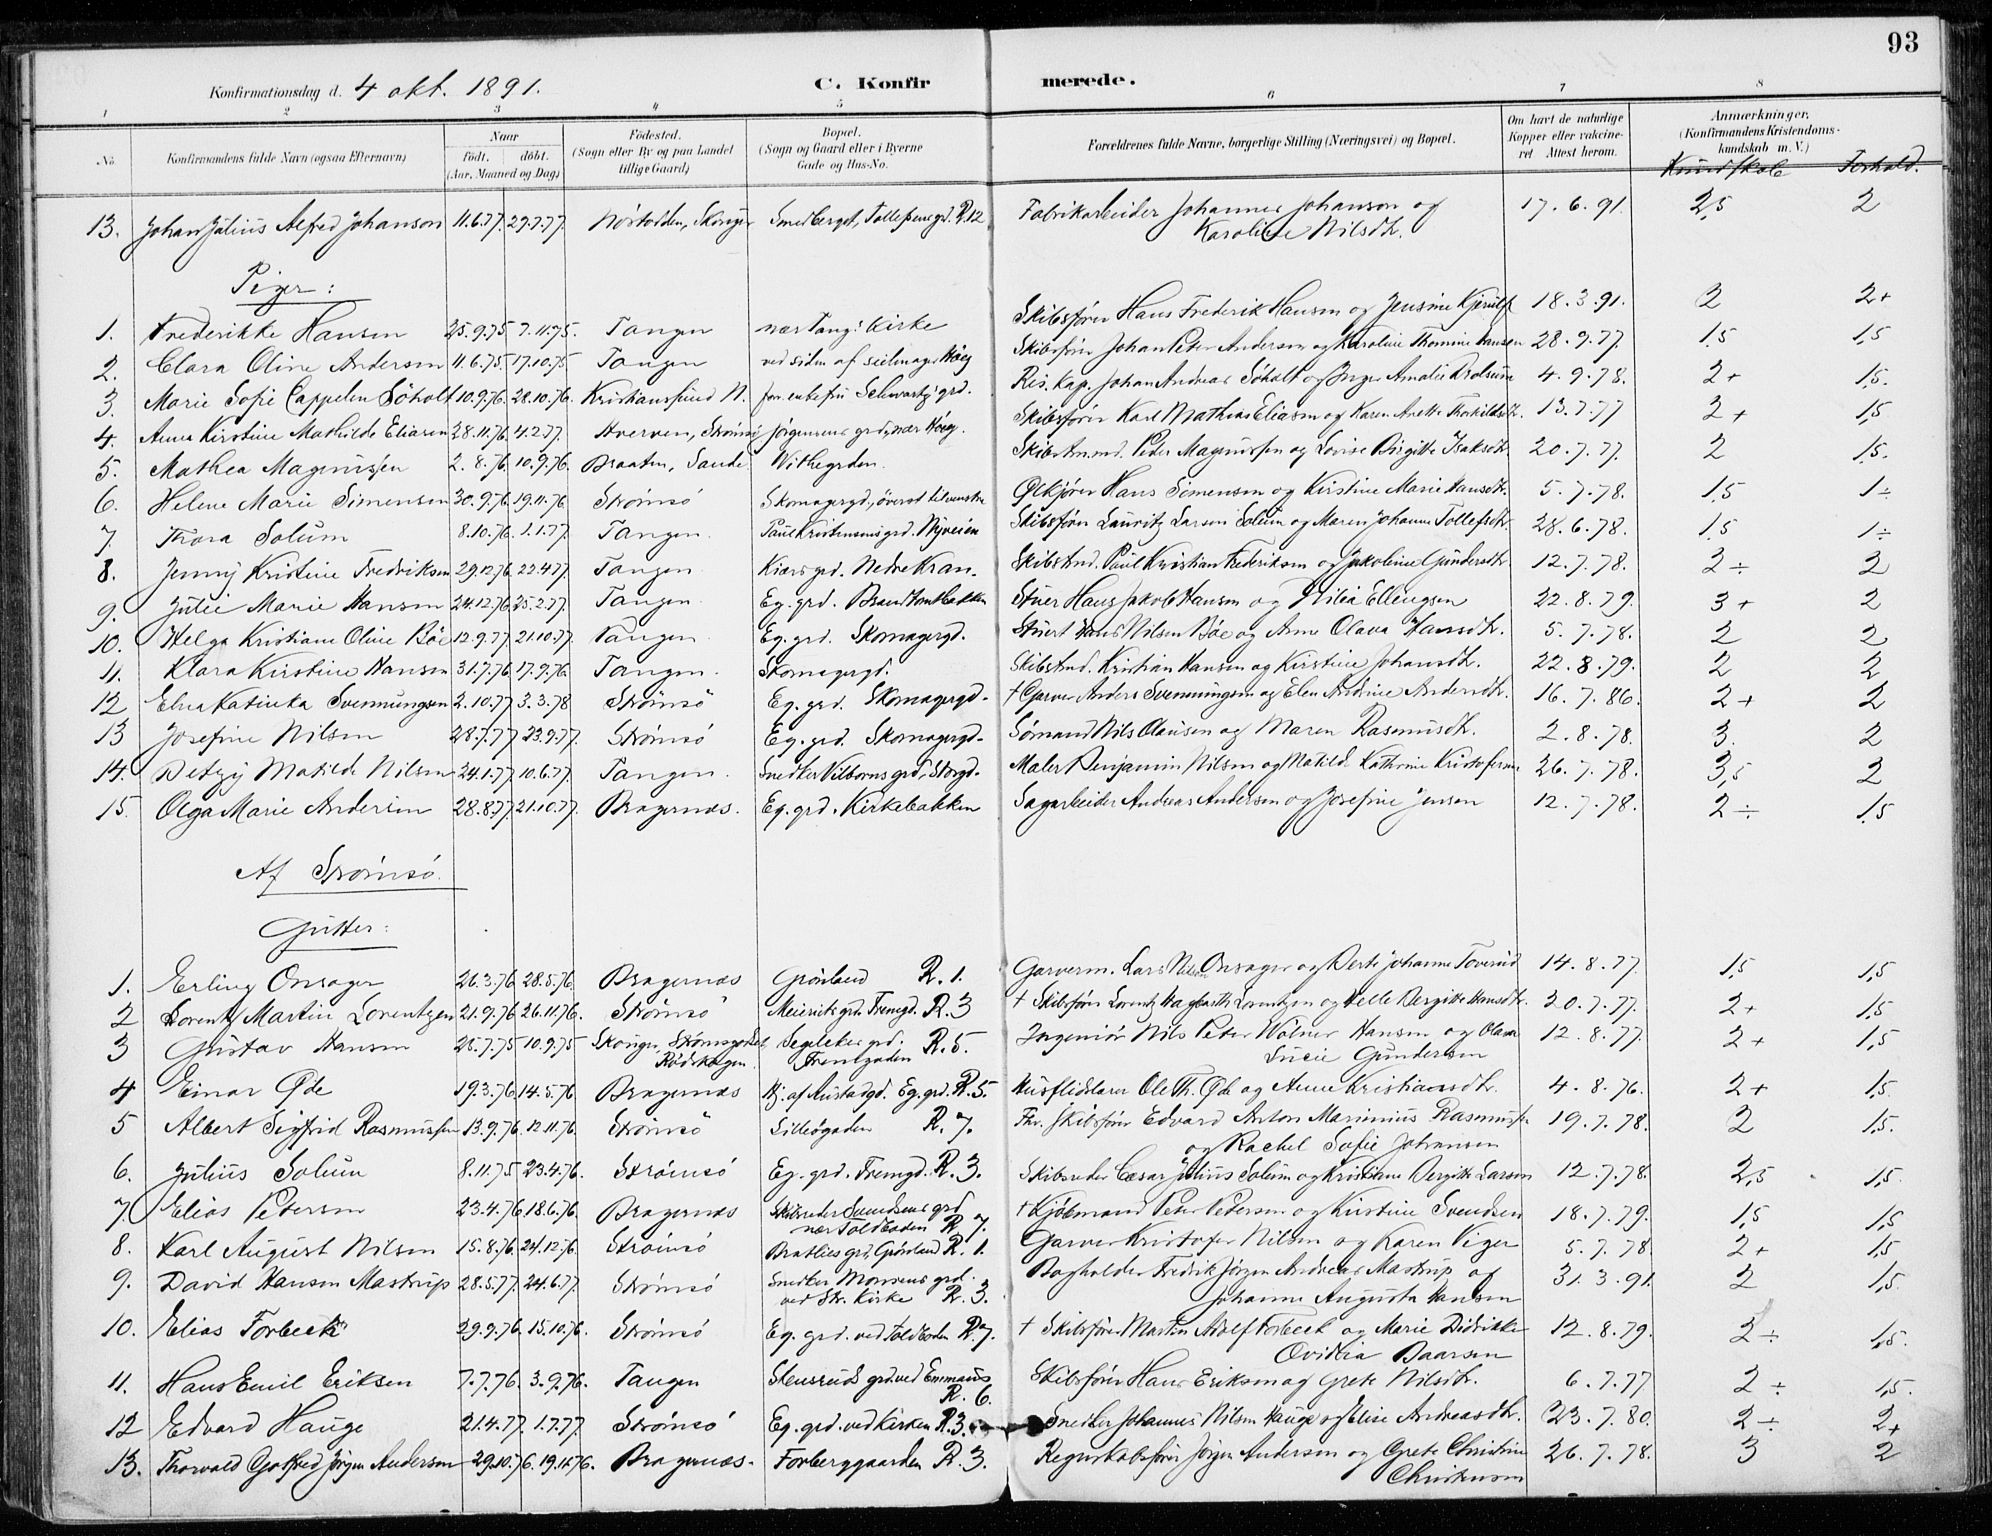 93
Konfirmationsdag d. 4 okt. 1891.
C. Konfirmerede.
1 2 3 4 5 6 7 8
No. Konfirmandens fulde Navn (ogsaa Efternavn) Naar födt. döbt. (Aar, Maaned og Dag) Födested. (Sogn eller By og paa Landet tillige Gaard) Bopæl. (Sogn og Gaard eller i Byerne Gade og Hus-No. Forældrenes fulde Navne, borgerlige Stilling (Næringsvei) og Bopæl. Om havt de naturlige Kopper eller vakcineret Attest herom. Anmærkninger. (Konfirmandens Kristendomskundskab m. V.)
Kundskab Forhold.
13. Johan Julius Alfred Johanson 11.6.77. 29.7.77. Smedberget, Tollefsens grd. R.12 Fabrikarbeider Johannes Johanson og 17.6.91. 2,5 2
Karoline Nilsdtr.
Piger:
1. Frederikke Hansen 25.9.75 7.11.75. Tangen nær Tang: Kirke Skibsfører Hans Frederik Hansen og Jensine Kjerulf 18.3.91. 2 2+
2. Clara Oline Andersen 11.6.75 17.10.75 Tangen ved siden af seilmager Höeg Skibsfører Johan Peter Andersen og Karoline Thomine Hansen 28.9.77. 1,5 1,5
3. Marie Sofie Cappelen Söholt 10.9.76. 28.10.76. Kristianssund N. Schwartz' grd. Johan Andreas Søholt og Inger Amalie 4.9.78. 2+ 1,5.
4. Anna Kirstine Mathilde Eliasen 28.11.76 4.2.77. Hverven, Strömsö Jörgensens grd, nær Höeg. Skibsfører Karl Mathias Eliasen og Karen Anette Thorkildsdtr. 13.7.77 2+ 1,5
5. Mathea Magnussen 2.8.76. 10.9.76. Braaten, Sande Withegrden. Peter Magnussen og Lovise Birgitte Isaksdtr. 20.7.77. 2 1,5.
6. Helene Marie Simensen 30.9.76 19.11.76 Strömsö Skomagergd, överst til venstre Ølkjører Hans Simensen og Kirstine Marie Hansdtr. 5.7.78. 1,5 1÷
7. Thora Solum 8.10.76. 1.1.77. Tangen. Paul Kristensens grd. Nyveien Skibsfører Lauritz Larsen Solum og Maren Johanne Tollefsdtr 28.6.78. 1,5 1÷
8. Jenny Kristine Fredriksen 29.12.76. 22.4.77. Tangen. Kiærs grd. Nedre Kran. Paul Kristian Frederiksen og Jakobine Gundersdtr 12.7.78. 2÷ 2
9. Julie Marie Hansen 24.12.76 25.2.77. Tangen. Eg. grd. Brandtenbakken Stuer Hans Jakob Hansen og Nilia Ellengsen 22.8.79. 3+ 2
10. Helga Kristiane Oline Böe 12.9.77. 21.10.77. Tangen. Eg. grd. Skomagergd. Stuert Hans Nilsen Böe og Anne Olava Hansdtr. 5.7.78. 2 2
11. Klara Kirstine Hansen 31.7.76 17.9.76 Tangen. Skomagergd. Kristian Hansen og Kirstine Johansdtr. 22.8.79. 2 2
12 Elna Katinka Svenningsen 2.10.77. 3.3.78 Strömsö Eg. grd. Skomagergd. † Garver Anders Svenningsen og Elen Andrine Andersdtr. 16.7.86. 2+ 2
13 Josefine Nilsen 28.7.77 23.9.77. Strömsö Eg. grd. Skomagergd. Sømand Nils Olausen og Maren Rasmusdtr. 2.8.78. 3. 2
14. Betzy Matilde Nilsen 24.1.77 10.6.77. Tangen. Snedker Vilborns grd, Storgd. Maler Benjamin Nilsen og Matilde Kathrine Kristofersen 26.7.78. 3,5 2
15. Olga Marie Andersen 28.8.77. 21.10.77. Bragernæs. Eg. grd. Kirkebakken Sagarbeider Andreas Andersen og Josefine Jensen 12.7.78. 2÷ 1,5
Af Strömsö.
Gutter:
1. Erling Onsager 26.3.76 28.5.76. Bragernæs Grönland R. 1. Garverm. Lars Nilsen Onsager og Berte Johanne Toverud 14.8.77. 1,5 1,5
2 Lorentz Martin Lorentzen 21.9.76 26.11.76. Strömsö Meieriets grd. Tremgd. R. 3 † Skibsfører Lorentz Hagbarth Lorentzen og Helle Bergitte Hansdtr. 20.7.77. 2+ 1,5
3 Gustav Hansen 25.7.75 10.9.75 Skouger, Strömsgodset Segleker grd. R. 5. Ingeniör Nils Peter Wölner Hansen og Olava 12.8.77. 2+ 1,5
Rödskogen Tremgaden Lucie Gundersen
4 Einar Øde 19.3.76 14.5.76. Bragernæs Hj. af Austadgd. Eg. grd. R. 5. Husflidslærer Ole Th. Øde og Anne Kristiansdtr. 4.8.76. 2+ 1,5.
5 Albert Sigfrid Rasmussen 13.9.76. 12.11.76. Strömsö Lilleögaden R. 7. Fhv. Skibsfører Edvard Anton Marinius Rasmussen 19.7.78. 2 1,5.
og Rachel Sofie Johansen
6. Julius Solum 8.11.75 23.4.76. Strömsö Eg. grd. Tremgd. R. 3. Skibsreder Cæsar Julius Solum og Kristiane Bergitte Larsen 12.7.78. 2,5 1,5.
7. Elias Petersen 23.4.76 18.6.76. Bragernæs Skibsreder Svendsens grd † Kjöbmand Peter Petersen og Kirstine Svendsen 18.7.79. 1,5 1,5
nær Toldboden R. 7.
8. Karl August Nilsen 15.8.76. 24.12.76. Strömsö Bratlies grd, Grönland R. 1. Garver Kristofer Nilsen og Karen Viger 5.7.78. 2+ 1,5
9. David Hansen Mastrup 28.5.77. 24.6.77. Strömsö Snedker Monsens grd. Bogholder Fredrik Jörgen Andreas Mastrup og 31.3.91. 2 1,5.
ved Str. Kirke R. 3. Johanne Augusta Hansen
10. Elias Forbeck 29.9.76. 15.10.76. Strömsö Eg. grd. ved Toldboden R. 7. † Skibsfører Martin Adolf Forbeck og Marie Didrikke 12.8.79. 2÷ 1,5.
Ovidia Baarsen
11. Hans Emil Eriksen 7.7.76. 3.9.76. Tangen Stensruds grd ved Emmaus Skibsfører Hans Eriksen og Grete Nilsdtr. 6.7.77 2÷ 1,5.
R. 6.
12 Edvard Hauge 21.4.77. 1.7.77. Strömsö Eg. grd. ved Kirken R. 3. Snedker Johannes Nilsen Hauge og Eline Andreasdtr. 23.7.80. 2÷ 2+
13. Thorvald Gotfred Jörgen Andersen 29.10.76. 19.11.76. Bragernæs. Forberggaarden R. 3. Regnskabsfører Jörgen Andersen og Grete Christine 26.7.78. 3 2
Christensen